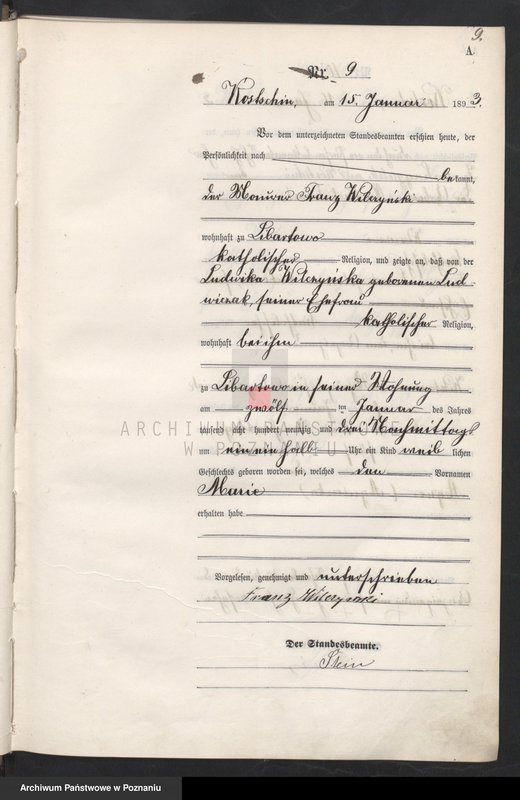 9.
A.
Nr. 9
Kostschin, am 15. Januar 1893.
Vor dem unterzeichneten Standesbeamten erschien heute, der
Persönlichkeit nach
bekannt,
der Maurer Franz Wilczyński
wohnhaft zu Libartowo
katholischer Religion, und zeigte an, daß von der
Ludwika Wilczyńska geborenen Lud-
wiczak, seiner Ehefrau
katholischer Religion,
wohnhaft bei ihm
zu Libartowo in seiner Wohnung
am zwölften Januar des Jahres
tausend acht hundert neunzig und drei Nachmittags
um ein ein halb Uhr ein Kind weiblichen
Geschlechts geboren worden sei, welches den Vornamen
Marie
erhalten habe
Vorgelesen, genehmigt und unterschrieben
Franz Wilczynski
Der Standesbeamte.
Stein
ARCHIWUM PAŃSTWOWE
W POZNANIU
Archiwum Państwowe w Poznaniu